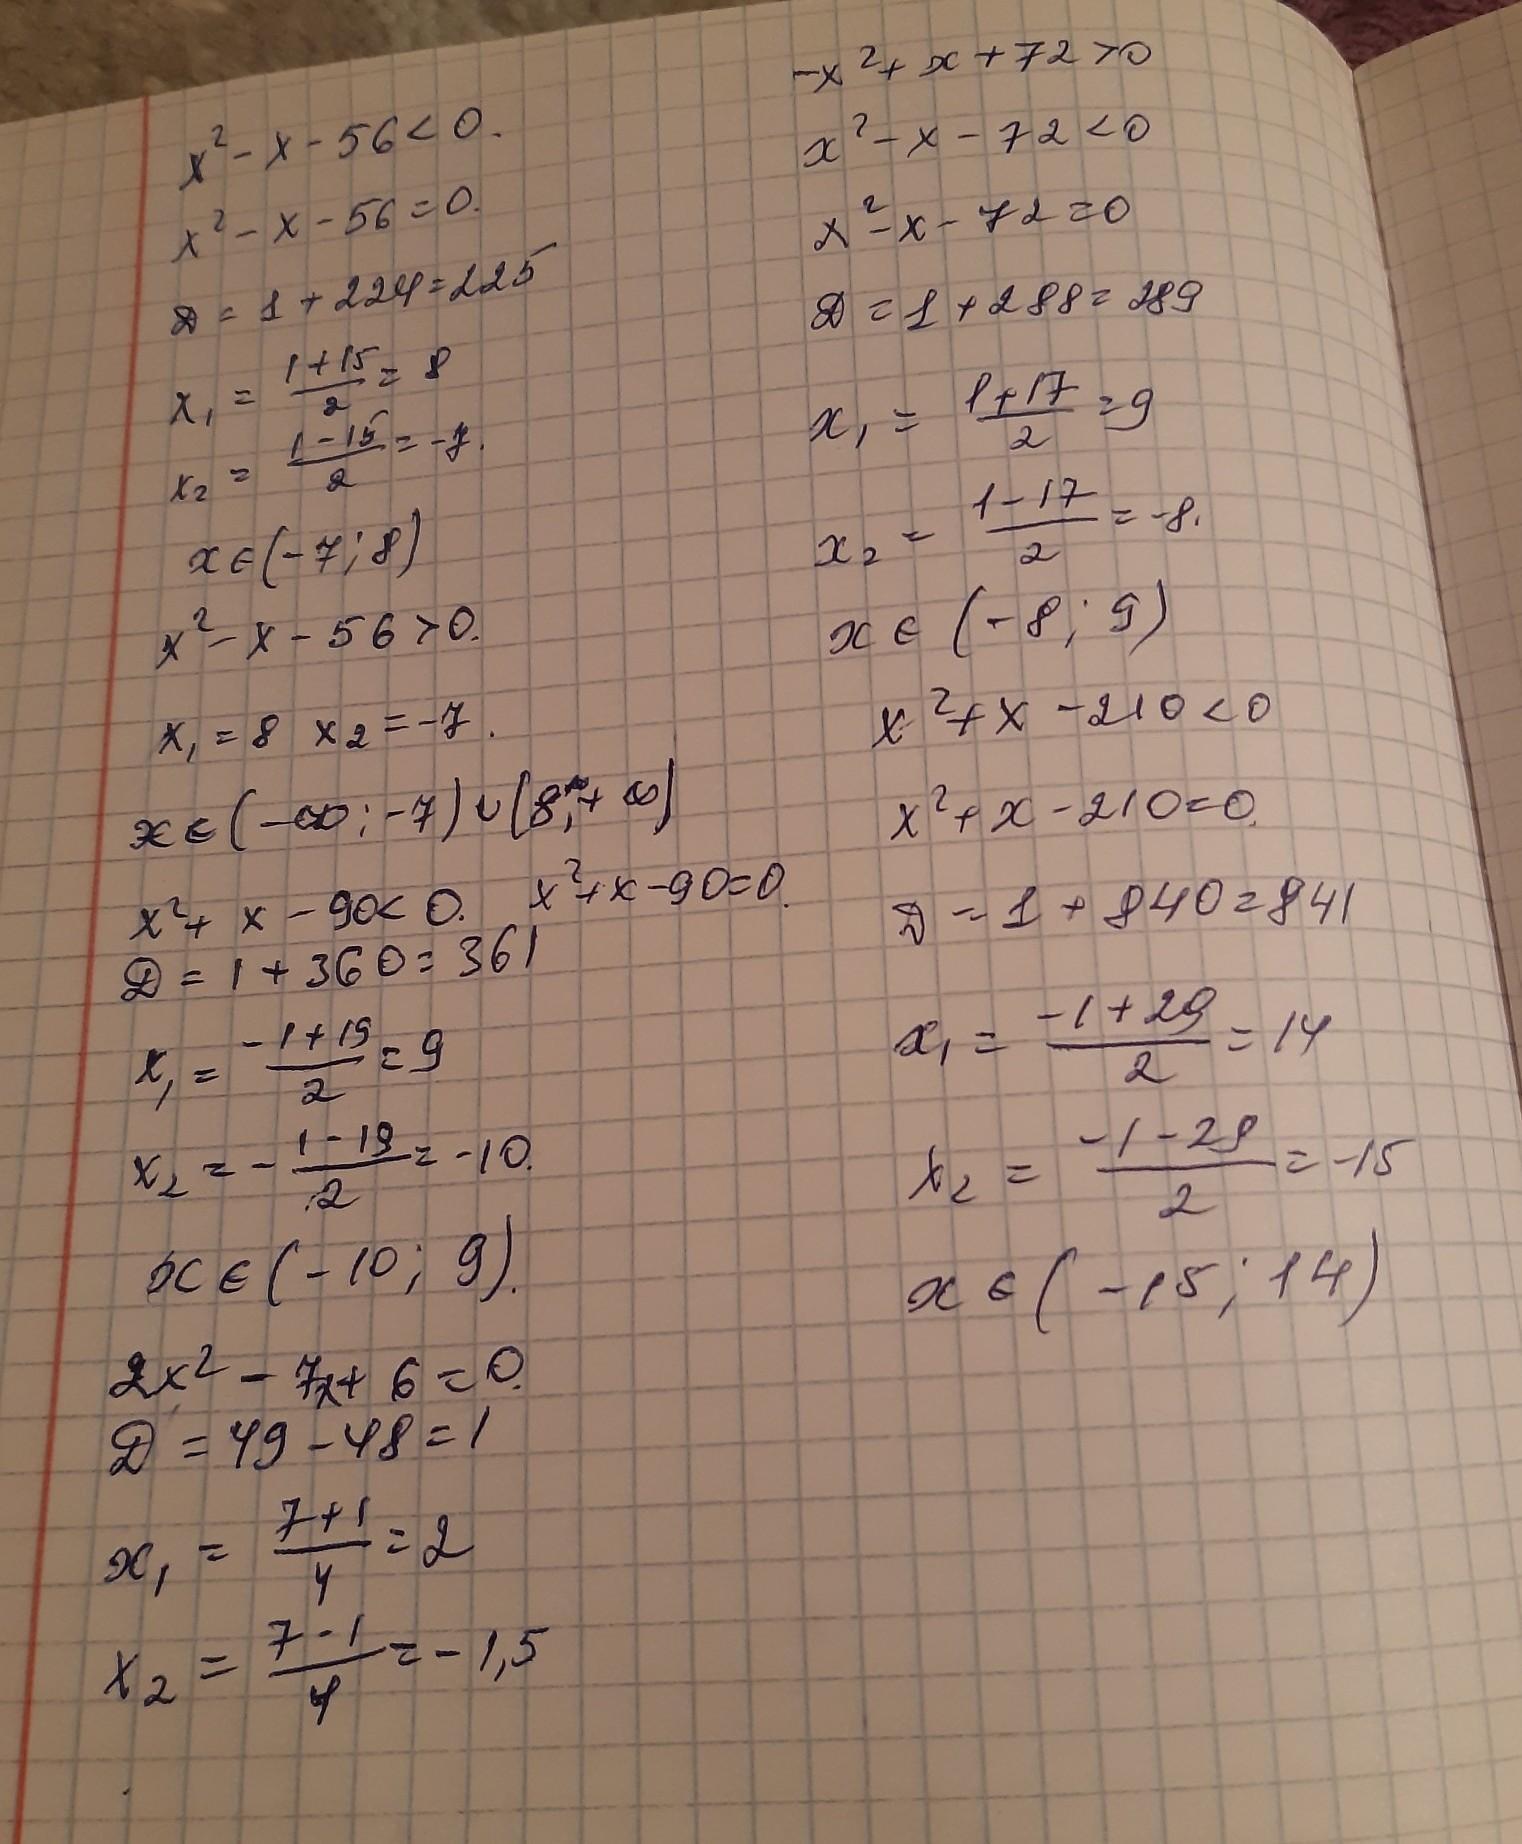 x² - x - 56 < 0.
x² - x - 56 = 0.
D = 1 + 224 = 225
x₁ = (1+15)/2 = 8
x₂ = (1-15)/2 = -7.
x ∈ (-7; 8)
x² - x - 56 > 0.
x₁ = 8 x₂ = -7.
x ∈ (-∞; -7) ∪ (8; +∞)
x² + x - 90 < 0. x² + x - 90 = 0.
D = 1 + 360 = 361
x₁ = (-1+19)/2 = 9
x₂ = -(1-19)/2 = -10.
x ∈ (-10; 9).
2x² - 7x + 6 = 0.
D = 49 - 48 = 1
x₁ = (7+1)/4 = 2
x₂ = (7-1)/4 = -1,5
-x² + x + 72 > 0
x² - x - 72 < 0
x² - x - 72 = 0
D = 1 + 288 = 289
x₁ = (1+17)/2 = 9
x₂ = (1-17)/2 = -8.
x ∈ (-8; 9)
x² + x - 210 < 0
x² + x - 210 = 0.
D = 1 + 840 = 841
x₁ = (-1+29)/2 = 14
x₂ = (-1-29)/2 = -15
x ∈ (-15; 14)